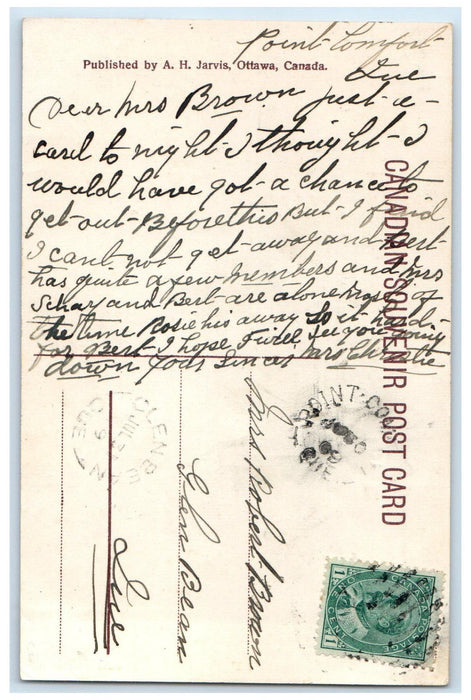 Point Comfort
Published by A. H. Jarvis, Ottawa, Canada.
Que
Dear Mrs Brown just a
card to night I thought I
would have got a chance to
get out Before this But I find
I cant not get away and Bert
has quite a few members and Mrs
and Bert are alone most of
the time Rosie his away So it hard
for Bert I hope I will see you going
down yours Since Mrs Charlie
CANADIAN SOUVENIR POST CARD
POINT CO
QUE
Mrs Robert Brown
Glen Bean
Que
GLEN BEAN
QUE
CANADA POSTAGE
ONE CENT
1 1